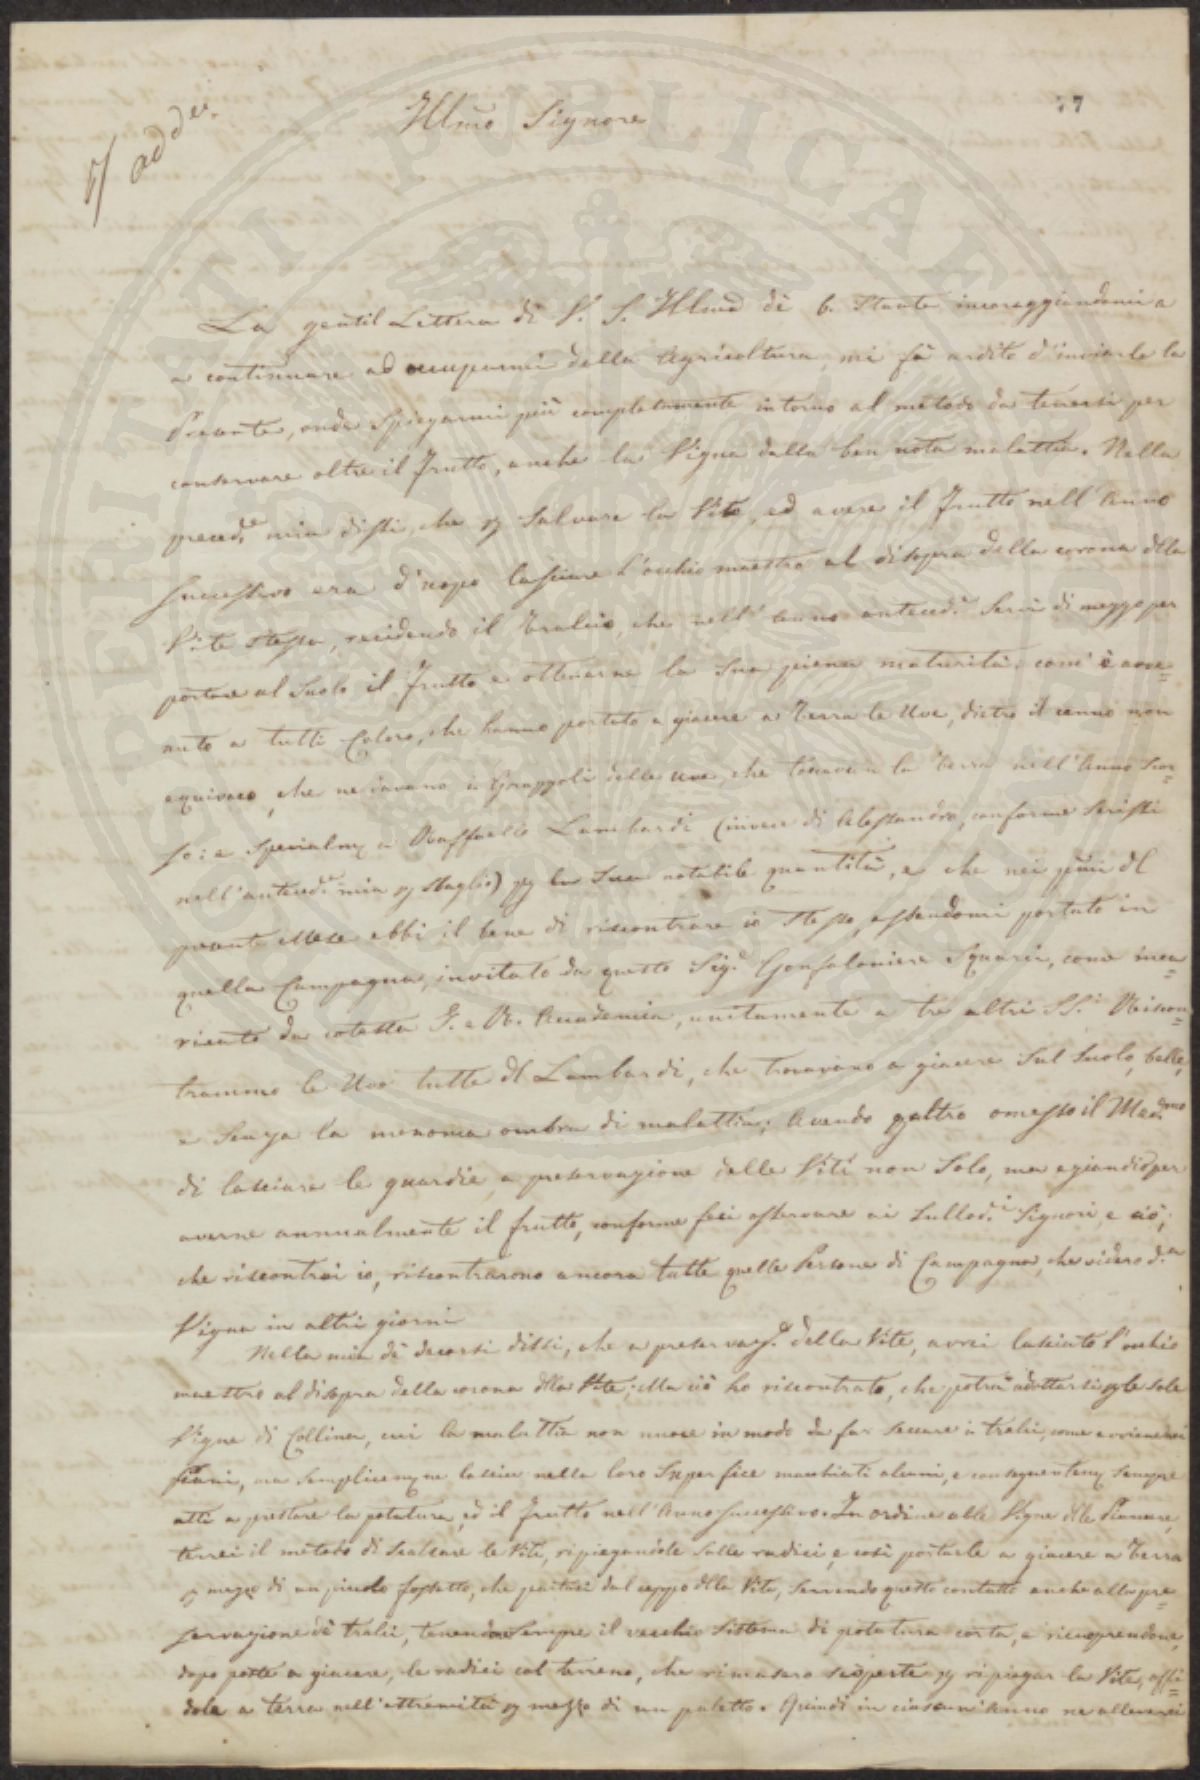 77
Illmo Signore
La gentil Lettera di V. S. Illma dè 6. Stante incoraggiandomi a
a continuare ad occuparmi della Agricoltura, mi fà ardito d'inviarle la
Presente, onde spiegarmi più completamente intorno al metodo da tenersi per
conservare oltre il frutto, anche la Vigna dalla ben nota malattia. Nella
preced.e mia dissi, che p salvare la Vite, ed avere il frutto nell'Anno
successivo era d'uopo lasciare l'occhio maestro al disopra della corona dlla
Vite stessa, recidendo il Tralcio, che nell'Anno anteced.e servì di mezzo per
portare al Suolo il frutto e ottenerne la sua piena maturità, com'è avve=
nuto a tutti Coloro, che hanno portato a giacere a Terra le Uve, dietro il cenno non
equivoco, che ne davano i Grappoli delle uve, che toccavan la Terra nell'Anno scor=
so: e specialm. a Raffaello Lambardi (invece di Alessandro, conforme scrissi
nell'anteced.e mia p sbaglio) p la sua notabile quantità, e che nei primi dl
presente Mese ebbi il bene di riscontrare io stesso, essendomi portato in
quella Campagna, invitato da questo Sig.e Gonfaloniere Squarci, come inca=
ricato da cotesta I. e R. Accademia, unitamente a tre altri SS.i Riscon=
trammo le Uve tutte dl Lambardi, che trovavano a giacere sul Suolo, belle,
e senza la menoma ombra di malattia; Avendo paltro omesso il Med.mo
di lasciare le guardie, a preservazione delle Viti non solo, ma eziandio per
averne annualmente il frutto, conforme feci osservare ai sullod.i Signori, e ciò,
che riscontrai io, riscontrarono ancora tutte quelle Persone di Campagna, che videro d.a
Vigna in altri giorni
Nella mia dè decorsi dissi, che a preservaz.e della Vite, avrei lasciato l'occhio
maestro al disopra della corona dlla Vite; Ma ciò ho riscontrato, che potrà adottarsi p le sole
Vigne di Collina, cui la malattia non nuoce in modo da far seccare i tralci, come avviene nei
Piani, ma semplicem. ne lascia nella loro superfice macchiati alcuni, e conseguentem. sempre
atti a prestare la potatura, ed il frutto nell'Anno successivo. In ordine alle Vigne dlle Pianure,
terrei il metodo di Scalzare le Viti, ripiegandole sulle radici, e così portarle a giacere a Terra
p mezzo di un piccolo fossetto, che partisi dal ceppo dlla Vite, servendo questo contatto anche alla pre=
servazione dè tralci, tenendo sempre il vecchio sistema di potatura corta, e ricuoprendone,
dopo poste a giacere, le radici col terreno, che rimasero scoperte p ripiegar la Vite, affi=
dola a terra nell'estremità p mezzo di un paletto. Quindi in ciascun'Anno ne alleverei